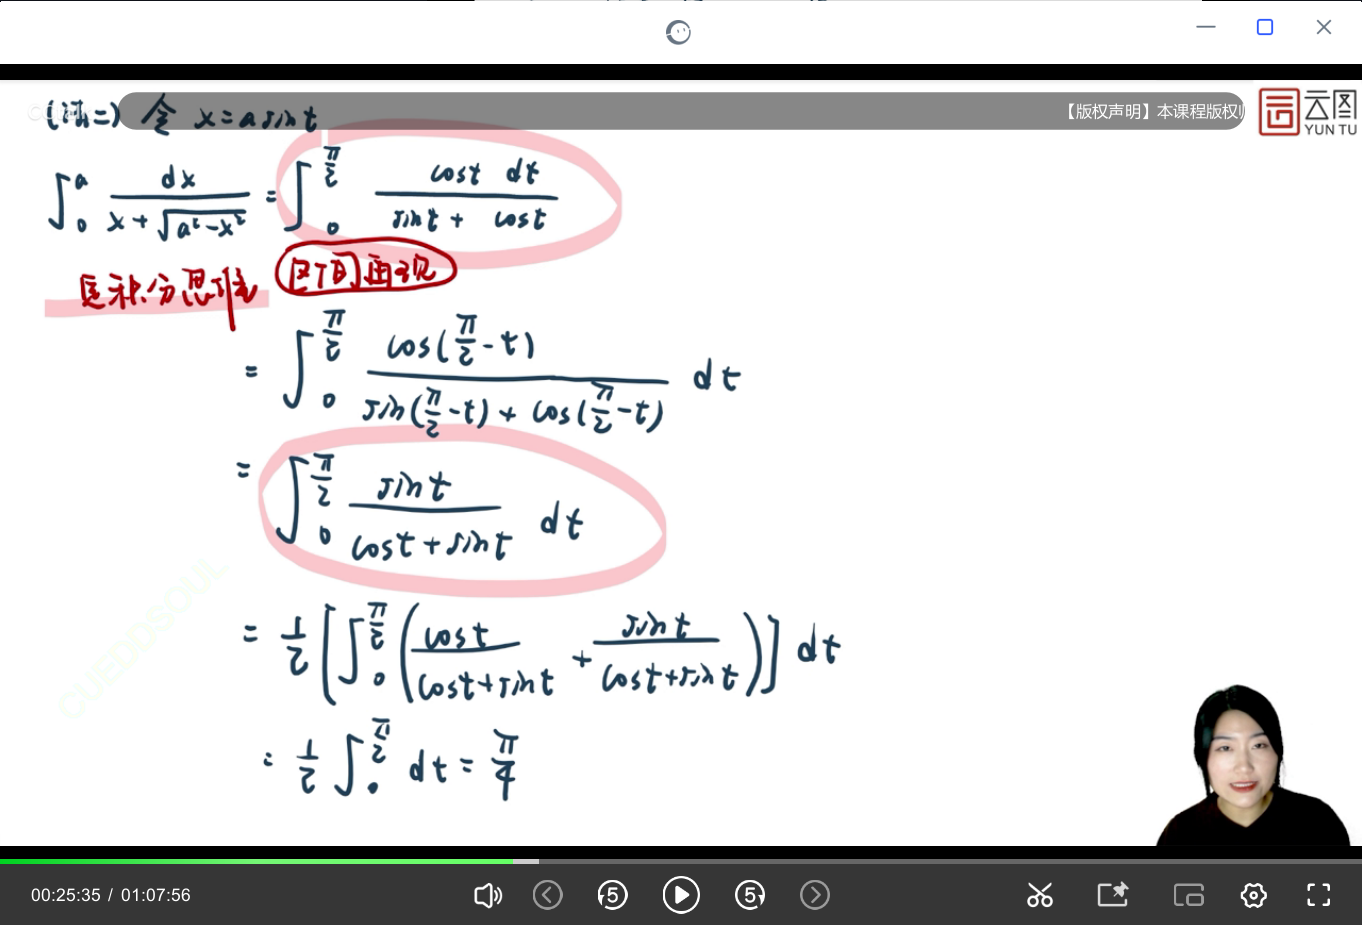 (法二) 令 x = a sin t
【版权声明】本课程版权归
云图
YUN TU
∫₀ᵃ dx / (x + √(a² - x²)) = ∫₀^(π/2) cost dt / (sint + cost)
定积分思维 区间再现
= ∫₀^(π/2) cos(π/2 - t) / (sin(π/2 - t) + cos(π/2 - t)) dt
= ∫₀^(π/2) sint / (cost + sint) dt
CUEDDSOUL
= 1/2 [∫₀^(π/2) (cost / (cost + sint) + sint / (cost + sint))] dt
= 1/2 ∫₀^(π/2) dt = π/4
00:25:35 / 01:07:56
5
5